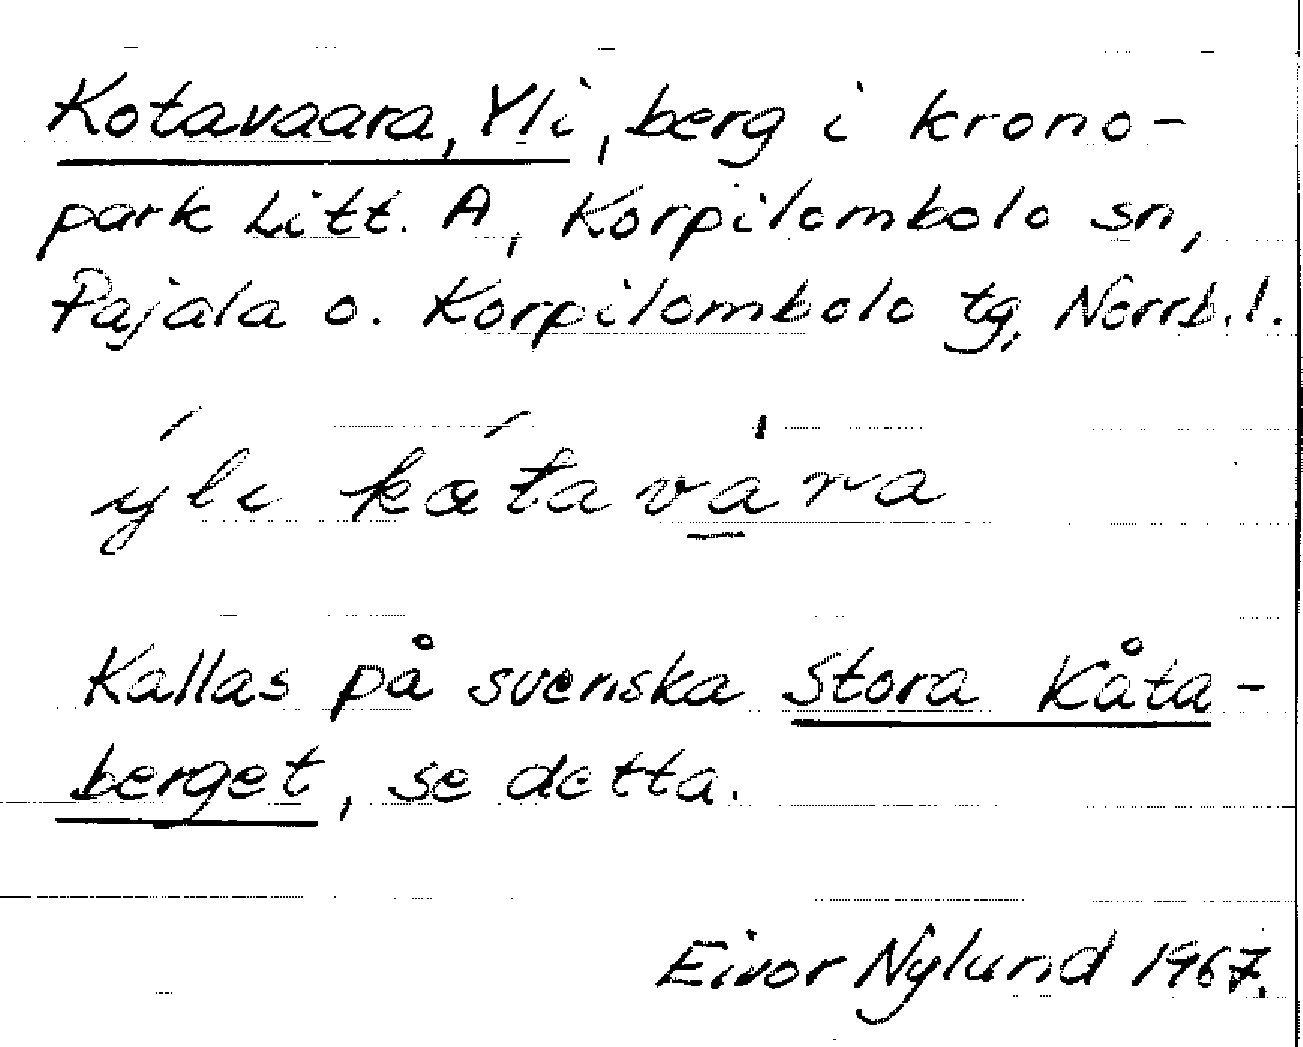 Kotavaara, Yli, berg i krono-
park Litt. A, Korpilombolo sn,
Pajala o. Korpilombolo tg, Norrb. l.
ýli kótavàra
Kallas på svenska Stora Kåta-
berget, se detta.
Eivor Nylund 1967.